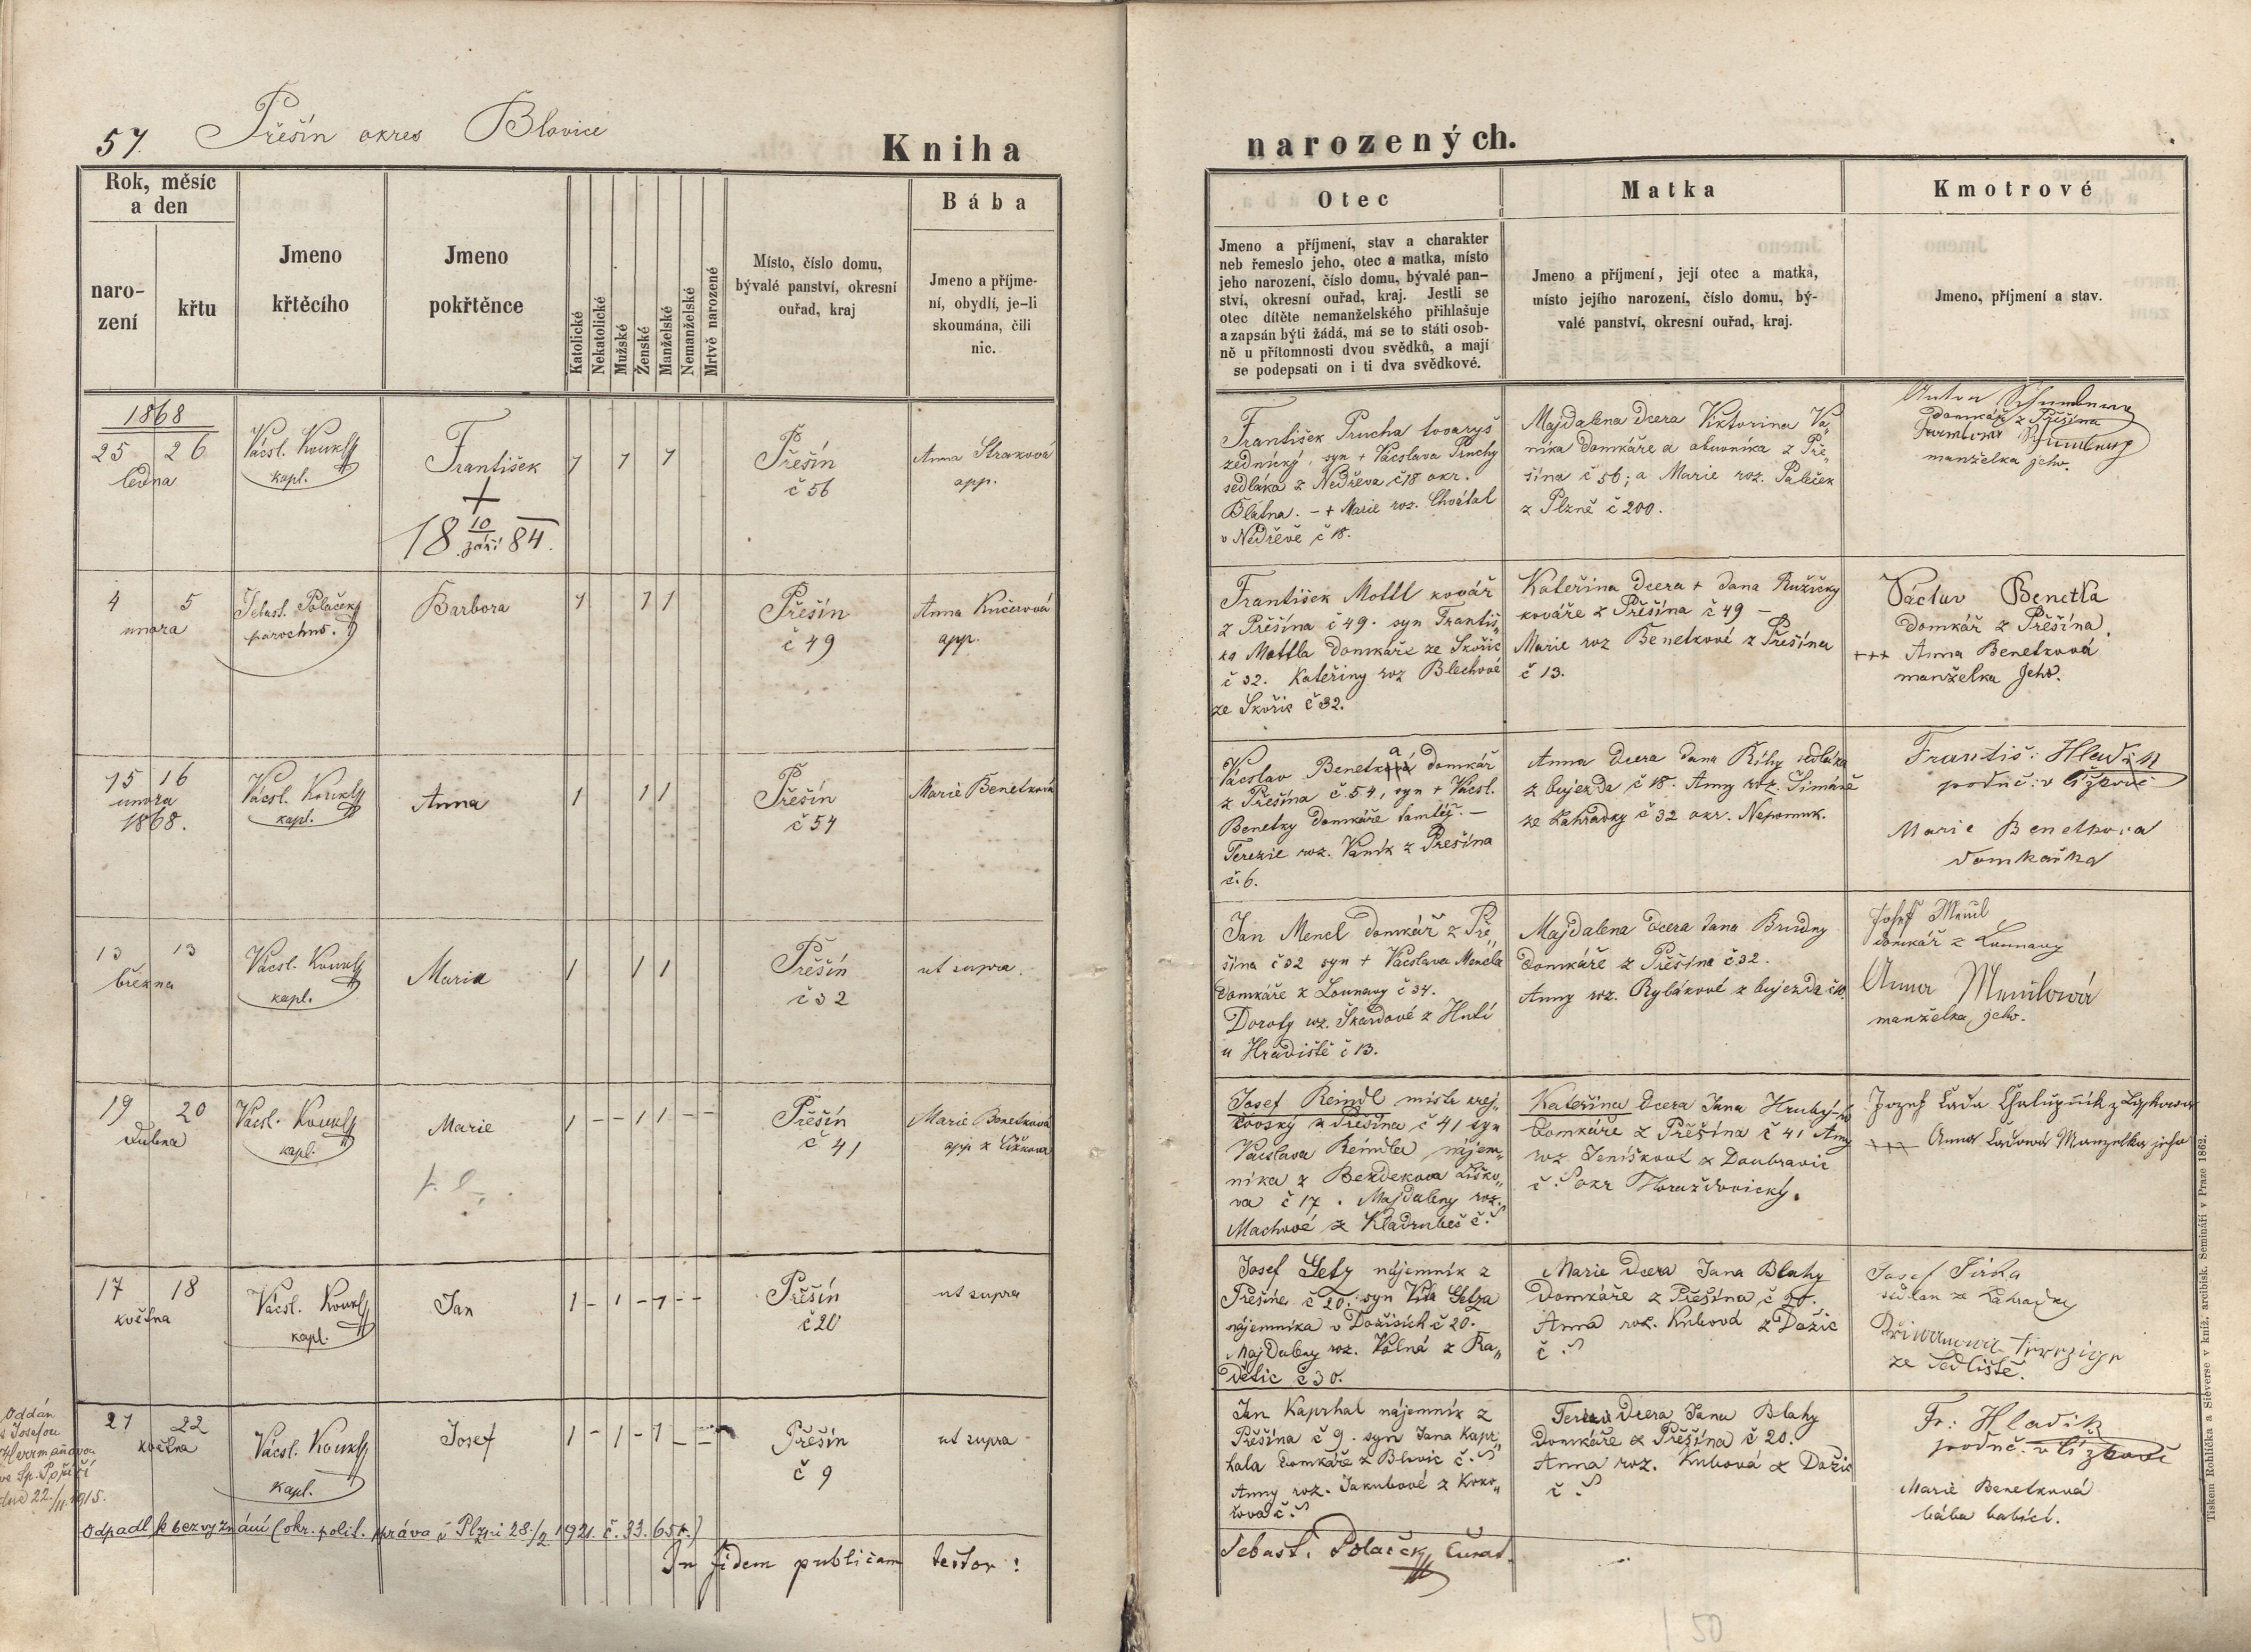 57. Přěšín okres Blovice
Kniha
narozených.
Rok, měsíc
a den
naro-
zení
křtu
Jmeno
křtěcího
Jmeno
pokřtěnce
Katolické
Nekatolické
Mužské
Ženské
Manželské
Nemanželské
Mrtvě narozené
Místo, číslo domu,
bývalé panství, okresní
ouřad, kraj
Bába
Jmeno a příjme-
ní, obydlí, je-li
skoumána, čili
nic.
Otec
Jmeno a příjmení, stav a charakter
neb řemeslo jeho, otec a matka, místo
jeho narození, číslo domu, bývalé pan-
ství, okresní ouřad, kraj. Jestli se
otec dítěte nemanželského přihlašuje
a zapsán býti žádá, má se to státi osob-
ně u přítomnosti dvou svědků, a mají
se podepsati on i ti dva svědkové.
Matka
Jmeno a příjmení, její otec a matka,
místo jejího narození, číslo domu, bý-
valé panství, okresní ouřad, kraj.
Kmotrové
Jmeno, příjmení a stav.
1868
25 26
ledna
Vácsl. Koukl
kapl.
František
+
18 10/září 84.
1 1 1
Přěšín
č 56
Anna Straková
app.
František Prucha tovaryš
zednický, syn + Vácslava Pruchy
sedláka z Nedřeva č 18 okr.
Blatna. – + Marie roz. Chvátal
v Nedřevě č 18.
Majdalena dcera Viktorina Va„
níka domkáře a obuvníka z Pře„
šína č 56; a Marie roz. Paleček
z Plzně č 200.
Anton
domkář z Přěšína
manželka jeho.
4 5
unora
Sebast. Polaček
parochus.
Barbora
1 1 1
Přěšín
č 49
Anna Kučerová
app.
František Mottl kovář
z Přěšína č 49. syn Františ„
ka Mottla domkáře ze Skořic
č 32. Kateřiny roz Blechové
ze Skořic č 32.
Kateřina dcera + Jana Ružičky
kováře z Přěšína č 49 –
Marie roz Benetkové z Přešína
č 13.
Václav Benetka
domkář z Přěšína.
+++ Anna Benetková
manželka jeho.
15 16
unora
1868.
Vácsl. Koukl
kapl.
Anna
1 1 1
Přěšín
č 54
Marie Benetková
Vácslav Benetka domkář
z Přešína č 54, syn + Vácsl.
Benetky domkáře tamtéž. –
Terezie roz. Vaník z Přešína
č. 6.
Anna dcera Jana Říhy sedláka
z bujezda č 18. Anny roz. Šimáně
ze Zahradky č 32 okr. Nepomuk.
Frantiś: Hladik
podnč: v lížkově
Marie Benetková
domkařka
13 13
března
Vácsl. Koukl
kapl.
Maria
1 1 1
Přěšín
č 32
ut supra.
Jan Mencl domkář z Pře„
šína č 32 syn + Vácslava Mencla
domkáře z Lounovy č 34.
Doroty roz. Škardové z Hutí
u Hradiště č 13.
Majdalena dcera Jana Brudny
domkáře z Přěšína č 32.
Anny roz. Rybákové z bujezda č 10.
Josef Mencl
domkář z Lounovy
Anna
manželka jeho.
19 20
dubna
Vácsl. Koukl
kapl.
Marie
1 – – 1 1 – –
Přěšín
č 41
Marie Benetková
app. z Lížkova
Josef Reindl mistr krej„
čovský z Přešína č 41 syn
Vácslava Reindla nájem„
níka z Bezdekova Lížko„
va č 17. Majdaleny roz.
Machové z Kladrubeš č.
Kateřina dcera Jana Hrubý-ho
domkáře z Přěšína č 41 Anny
roz Jeniškové z Doubravic
č. okr Horažďovický.
Jozef Lada Chalupník z Lizkova
+++ Anna Ladowá Manzelka jeho
17 18
května
Vácsl. Koukl
kapl.
Jan
1 – 1 – 1 – –
Přěšín
č 20
ut supra
Josef Getz nájemník z
Přešína č 20. syn Víta Getza
nájemníka v Dožicích č 20.
Majdaleny roz. Volná z Ra„
dětic č 30.
Marie dcera Jana Blahy
domkáře z Přěšína č 20.
Anna roz. Kubová z Dožic
č.
Josef
sedlák ze Zahradky
ze Sedliště.
21 22
května
Vácsl. Koukl
kapl.
Josef
1 – 1 – 1 – –
Přěšín
č 9
ut supra
Jan Kaprhal nájemník z
Přěšína č 9. syn Jana Kapr„
hala domkáře z Blovic č.
Anny roz. Jakubové z Koko„
řova č.
Terezie dcera Jana Blahy
domkáře z Přěšína č 20.
Anna roz. Kubová z Dožic
č.
Fr: Hladik
podnč. v lížkově
Marie Benetková
bába babící.
Oddán
s Josefou
Herrmanovou
ve Sp. Poříčí
dne 22./11.1915.
Odpadl k bezvyznání (okr. polit. správa v Plzni 28./2 1921. č. 33.651.)
In fidem publicam testor!
Sebast. Polaček, Curat.
Tiskem Rohlíčka a Sieverse v kníž. arcibisk. Semináři v Praze 1862.
50